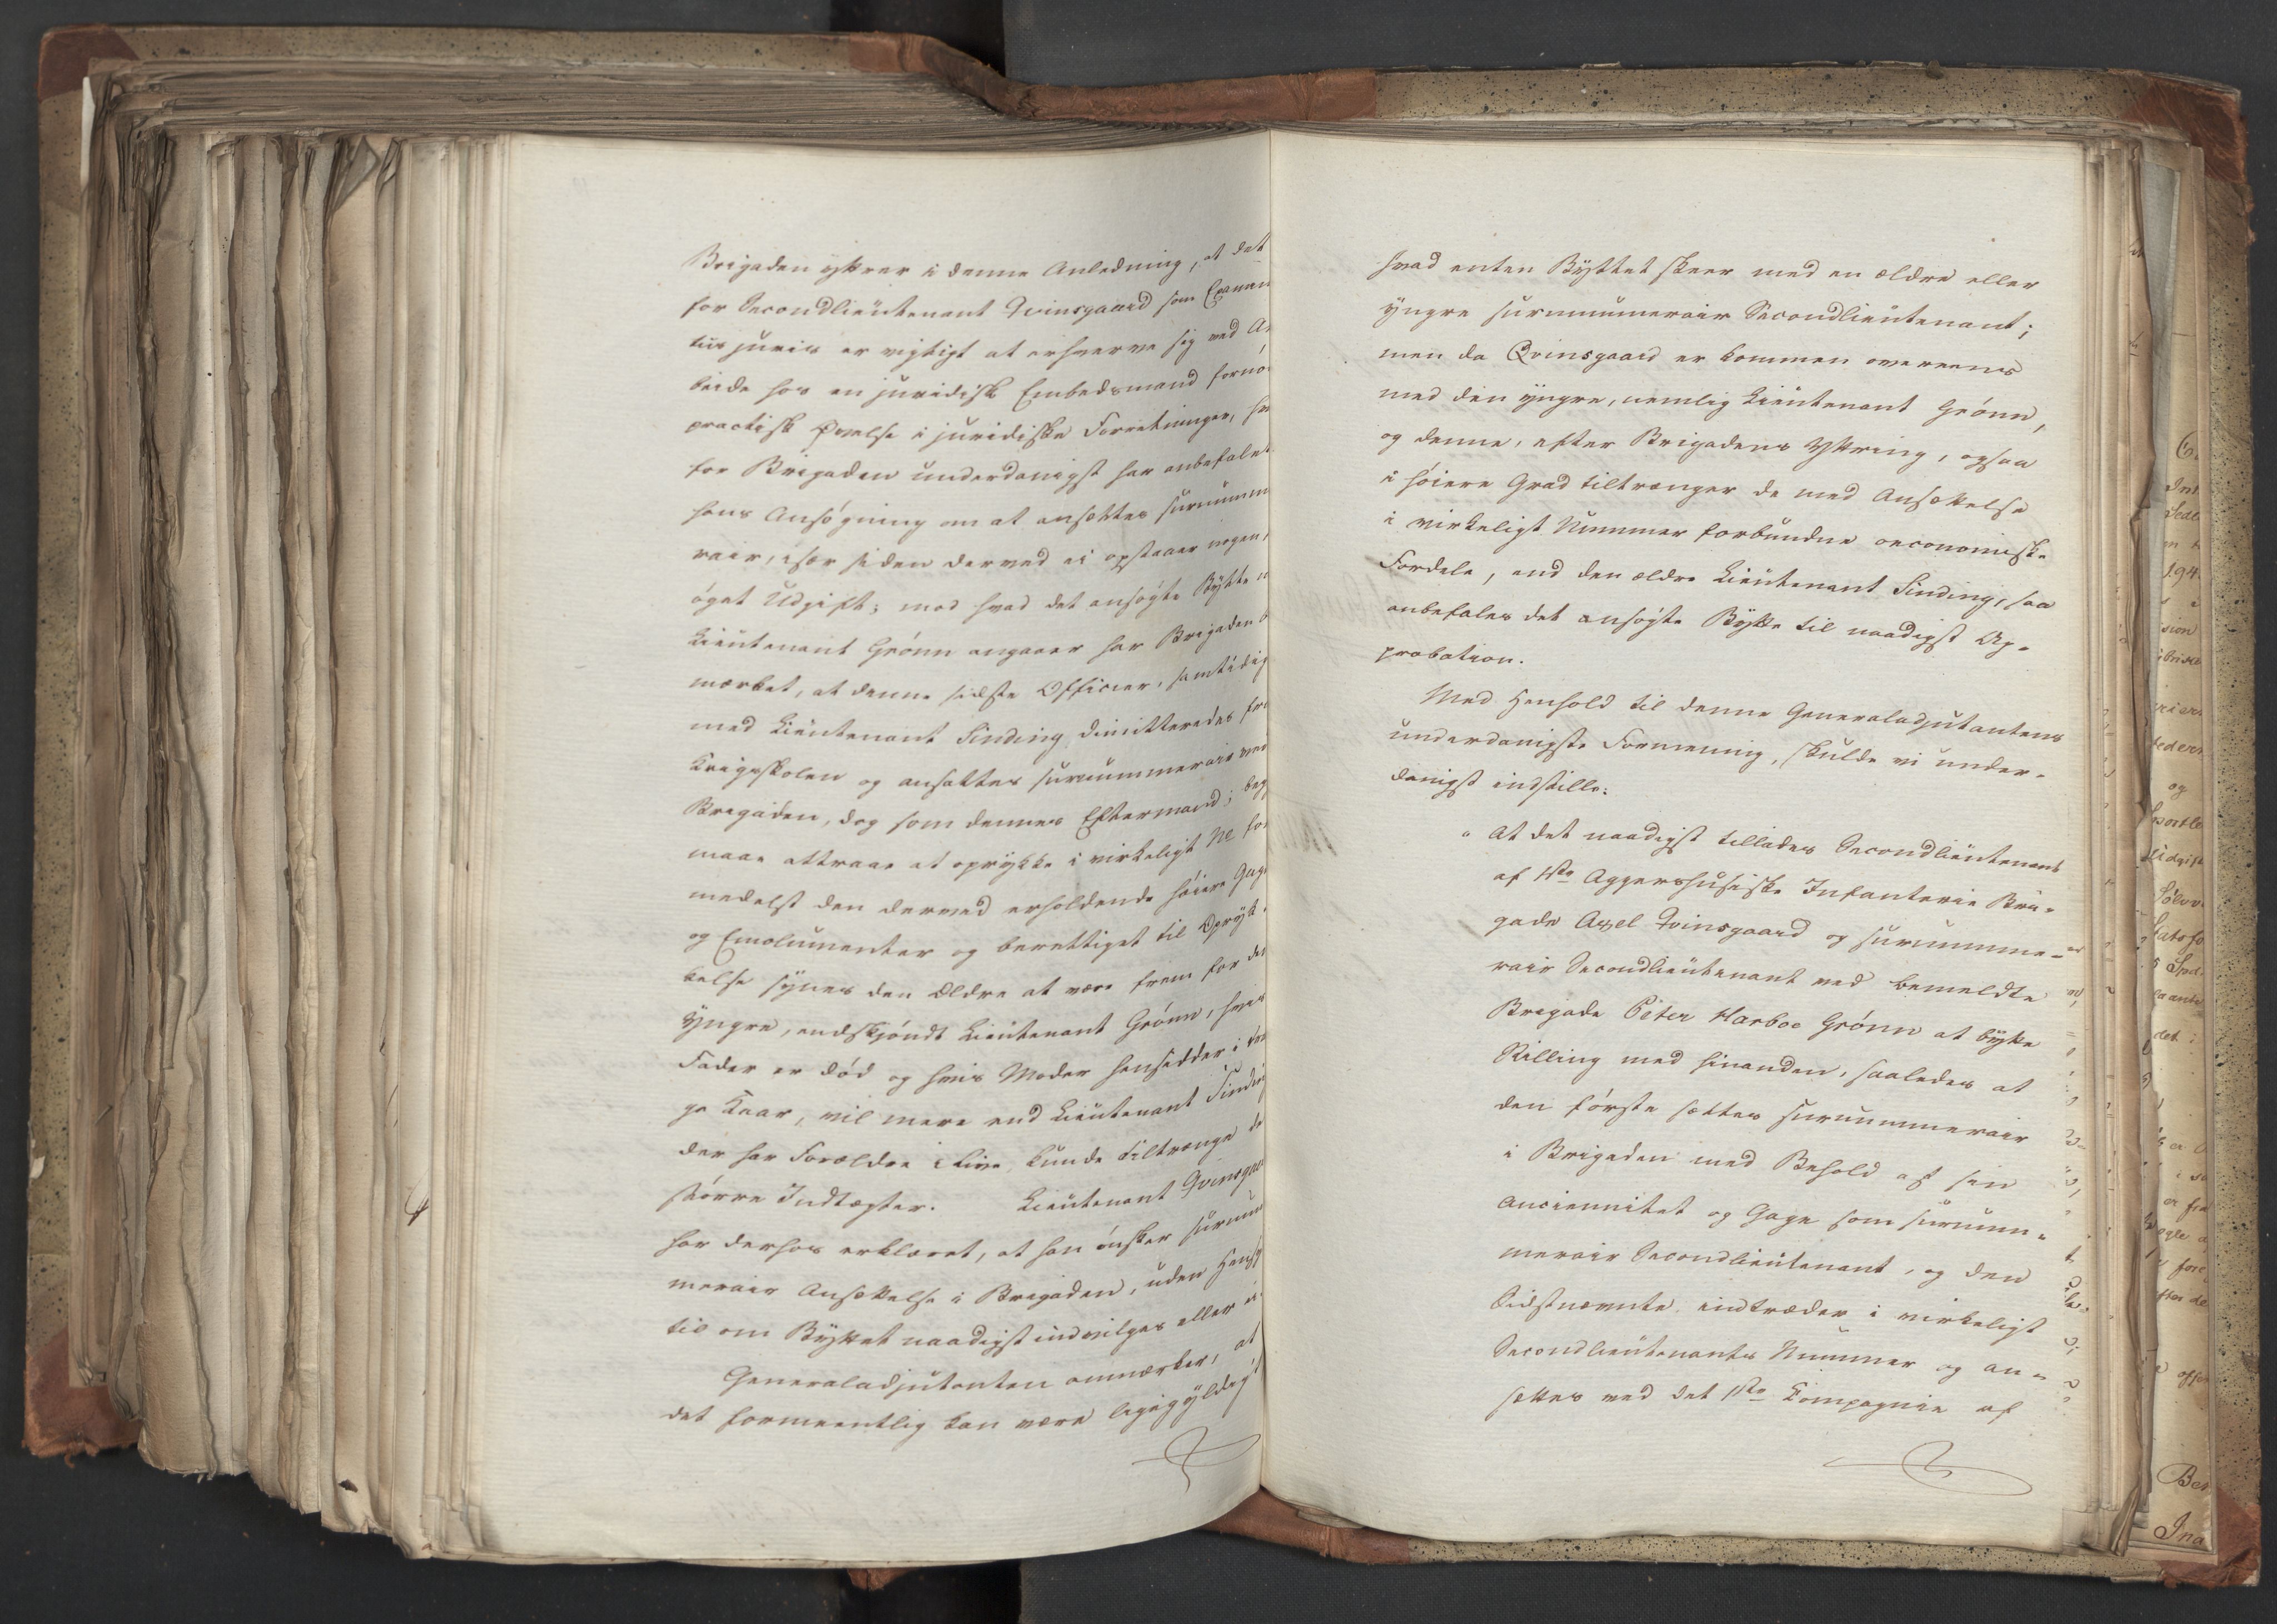 Brigaden yttrer i denne Anledning, at det
for Secondlieutenant Qvinsgaard som Examina
tus juris er vigtigt at erhverve sig ved Ar
beide hos en juridisk Embedsmand fornø
practisk Øvelse i juridiske Forretninger, hv
for Brigaden underdanigst har anbefalet
hans Ansøgning om at ansættes surnumme
rair, især siden derved ei opstaaer nogen
øget Udgift; mod hvad det ansøgte Bytte
Lieutenant Grønn angaaer har Brigaden
mærket, at denne sidste Officier, samtidig
med Lieutenant Sinding dimitteredes fra
Krigsskolen og ansattes surnummerair ved
Brigaden, dog som dennes Eftermand; beg
maae attraae at oprykke i virkeligt No for
medelst den derved erholdende høiere Gage
og Emolumenter og berettiget til Opryk
kelse synes den Ældre at være frem for den
Yngre, endskjøndt Lieutenant Grønn, hvis
Fader er død og hvis Moder hensidder i rin
ge Kaar, vil mere end Lieutenant Sinding
der har Forældre i Live, kunde tiltrænge de
større Indtægter. Lieutenant Qvinsgaa
har derhos erklæret, at han ønsker surnum
merair Ansættelse i Brigaden, uden Hensy
til om Byttet naadigst indvilges eller ei
Generaladjutanten anmærker, at
det formeentlig kan være ligegyldigt
hvad enten Byttet skeer med en ældre eller
yngre surnummerair Secondlieutenant;
men da Qvinsgaard er kommen overeens
med den yngre, nemlig Lieutenant Grønn,
og denne, efter Brigadens Yttring, ogsaa
i høiere Grad tiltrænger de med Ansættelse
i virkeligt Nummer forbundne oeconomiske
Fordele, end den ældre Lieutenant Sinding, saa
anbefales det ansøgte Bytte til naadigst Ap-
probation.
Med Henhold til denne Generaladjutantens
underdanigste Formening, skulde vi under-
danigst indstille:
" At det naadigst tillades Secondlieutenant
af 1ste Aggershusiske Infanterie Bri-
gade Axel Qvinsgaard og surnumme-
rair Secondlieutenant ved bemeldte
Brigade Peter Harboe Grønn at bytte
Stilling med hinanden, saaledes at
den første sættes surnummerair
i Brigaden med Behold af sin
Anciennitet og Gage som surnum-
merair Secondlieutenant, og den
Sidstnævnte indtræder i virkeligt
Secondlieutenants Nummer og an-
sættes ved det 1ste Compagnie af